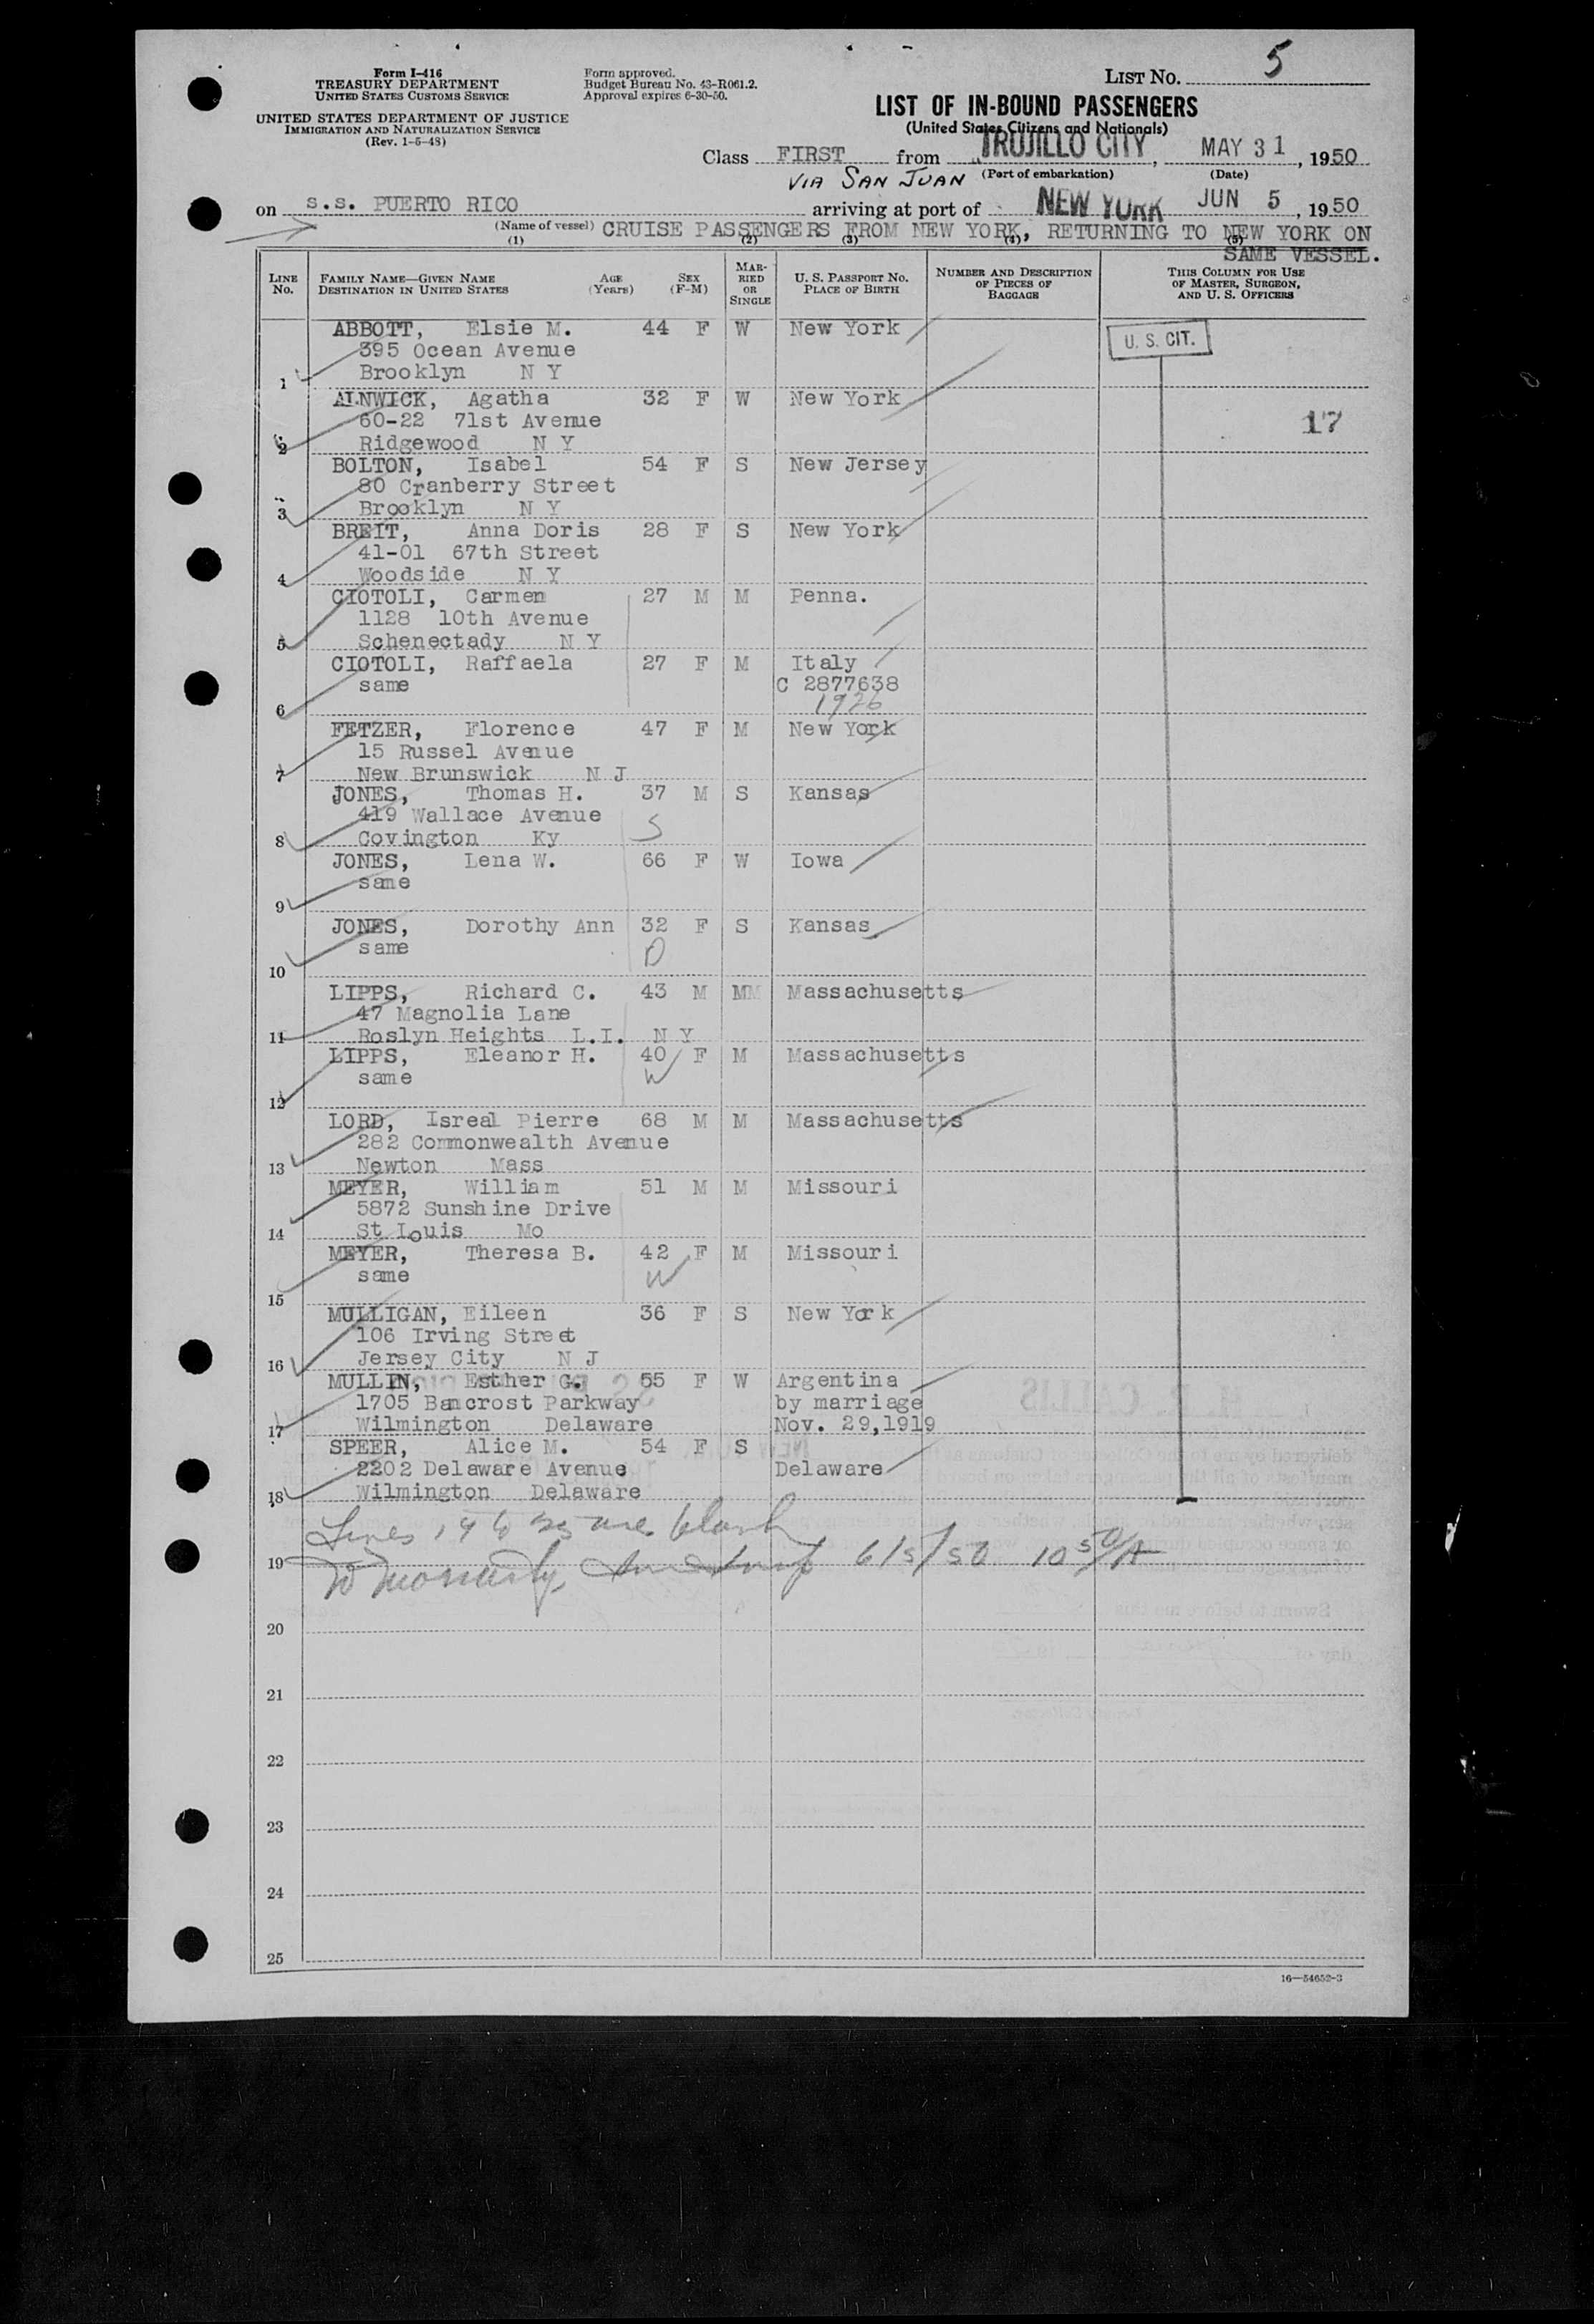 Form I-416
TREASURY DEPARTMENT
UNITED STATES CUSTOMS SERVICE
UNITED STATES DEPARTMENT OF JUSTICE
IMMIGRATION AND NATURALIZATION SERVICE
(Rev. 1-5-48)
Form approved.
Budget Bureau No. 43-R061.2.
Approval expires 6-30-50.
LIST No. 5
LIST OF IN-BOUND PASSENGERS
(United States Citizens and Nationals)
Class FIRST from TRUJILLO CITY, MAY 31, 1950
VIA SAN JUAN (Port of embarkation) (Date)
on s.s. PUERTO RICO arriving at port of NEW YORK JUN 5, 1950
(Name of vessel) CRUISE PASSENGERS FROM NEW YORK, RETURNING TO NEW YORK ON
SAME VESSEL.
(1) (2) (3) (4) (5)
LINE No.
FAMILY NAME—GIVEN NAME
DESTINATION IN UNITED STATES
AGE (Years)
SEX (F-M)
MARRIED OR SINGLE
U. S. PASSPORT NO.
PLACE OF BIRTH
NUMBER AND DESCRIPTION OF PIECES OF BAGGAGE
THIS COLUMN FOR USE OF MASTER, SURGEON, AND U. S. OFFICERS
ABBOTT, Elsie M. 44 F W New York
U. S. CIT.
395 Ocean Avenue
1 Brooklyn N Y
ALNWICK, Agatha 32 F W New York
60-22 71st Avenue 17
2 Ridgewood N Y
BOLTON, Isabel 54 F S New Jersey
80 Cranberry Street
3 Brooklyn N Y
BREIT, Anna Doris 28 F S New York
41-01 67th Street
4 Woodside N Y
CIOTOLI, Carmen 27 M M Penna.
1128 10th Avenue
5 Schenectady N Y
CIOTOLI, Raffaela 27 F M Italy
same C 2877638
6 1926
FETZER, Florence 47 F M New York
15 Russel Avenue
7 New Brunswick N J
JONES, Thomas H. 37 M S Kansas
419 Wallace Avenue S
8 Covington Ky
JONES, Lena W. 66 F W Iowa
same
9
JONES, Dorothy Ann 32 F S Kansas
same D
10
LIPPS, Richard C. 43 M MM Massachusetts
47 Magnolia Lane
11 Roslyn Heights L.I. N Y
LIPPS, Eleanor H. 40 F M Massachusetts
same W
12
LORD, Isreal Pierre 68 M M Massachusetts
282 Commonwealth Avenue
13 Newton Mass
MEYER, William 51 M M Missouri
5872 Sunshine Drive
14 St Louis Mo
MEYER, Theresa B. 42 F M Missouri
same W
15
MULLIGAN, Eileen 36 F S New York
106 Irving Street
16 Jersey City N J
MULLIN, Esther G. 55 F W Argentina
1705 Bancrost Parkway by marriage
17 Wilmington Delaware Nov. 29,1919
SPEER, Alice M. 54 F S
2202 Delaware Avenue Delaware
18 Wilmington Delaware
Lines 19 to 25 are blank
19 6/5/50 10 50/A
20
21
22
23
24
25
16—54652-3